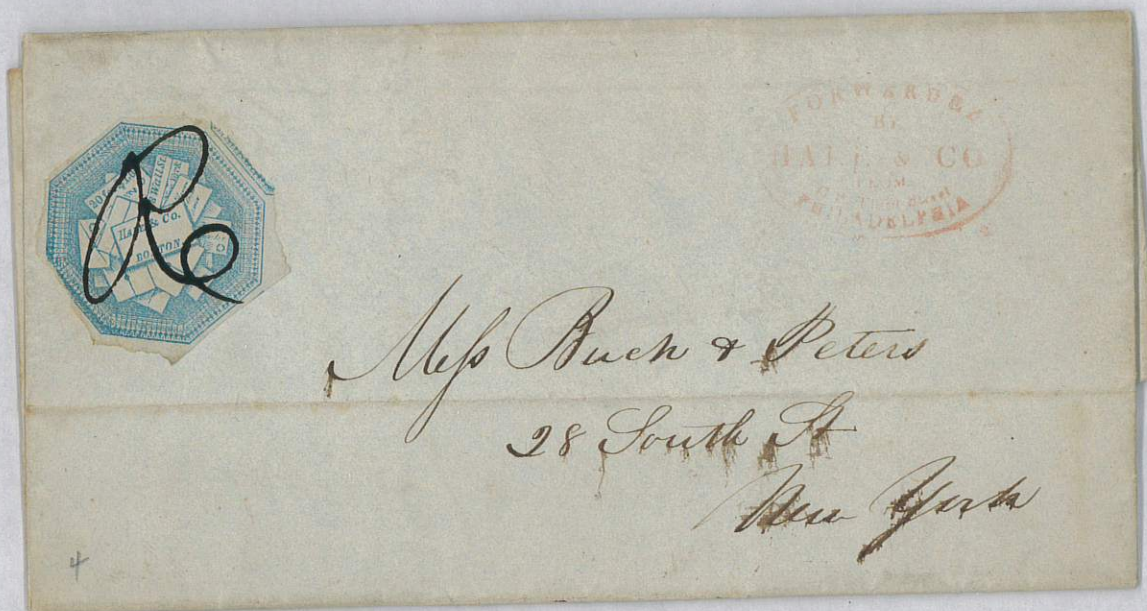 20 for $1
Wall St.
Hale & Co.
BOSTON
FORWARDED
BY
HALE & CO
FROM
PHILADELPHIA
Mess Buch & Peters
28 South St
New York
4